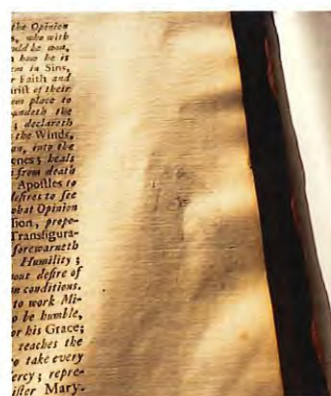 the Opinion
s, who with
ould be won,
how he is
em in Sins,
r Faith and
hrist of their
em place to
undeth the
; declareth
the Winds,
an, into the
enes; heals
from death
Apostles to
desires to see
what Opinion
sion, propo-
Transfigura-
forewarneth
Humility;
out desire of
on conditions.
to work Mi-
o be humble,
or his Grace;
reaches the
o take every
ercy; repre-
ister Mary.